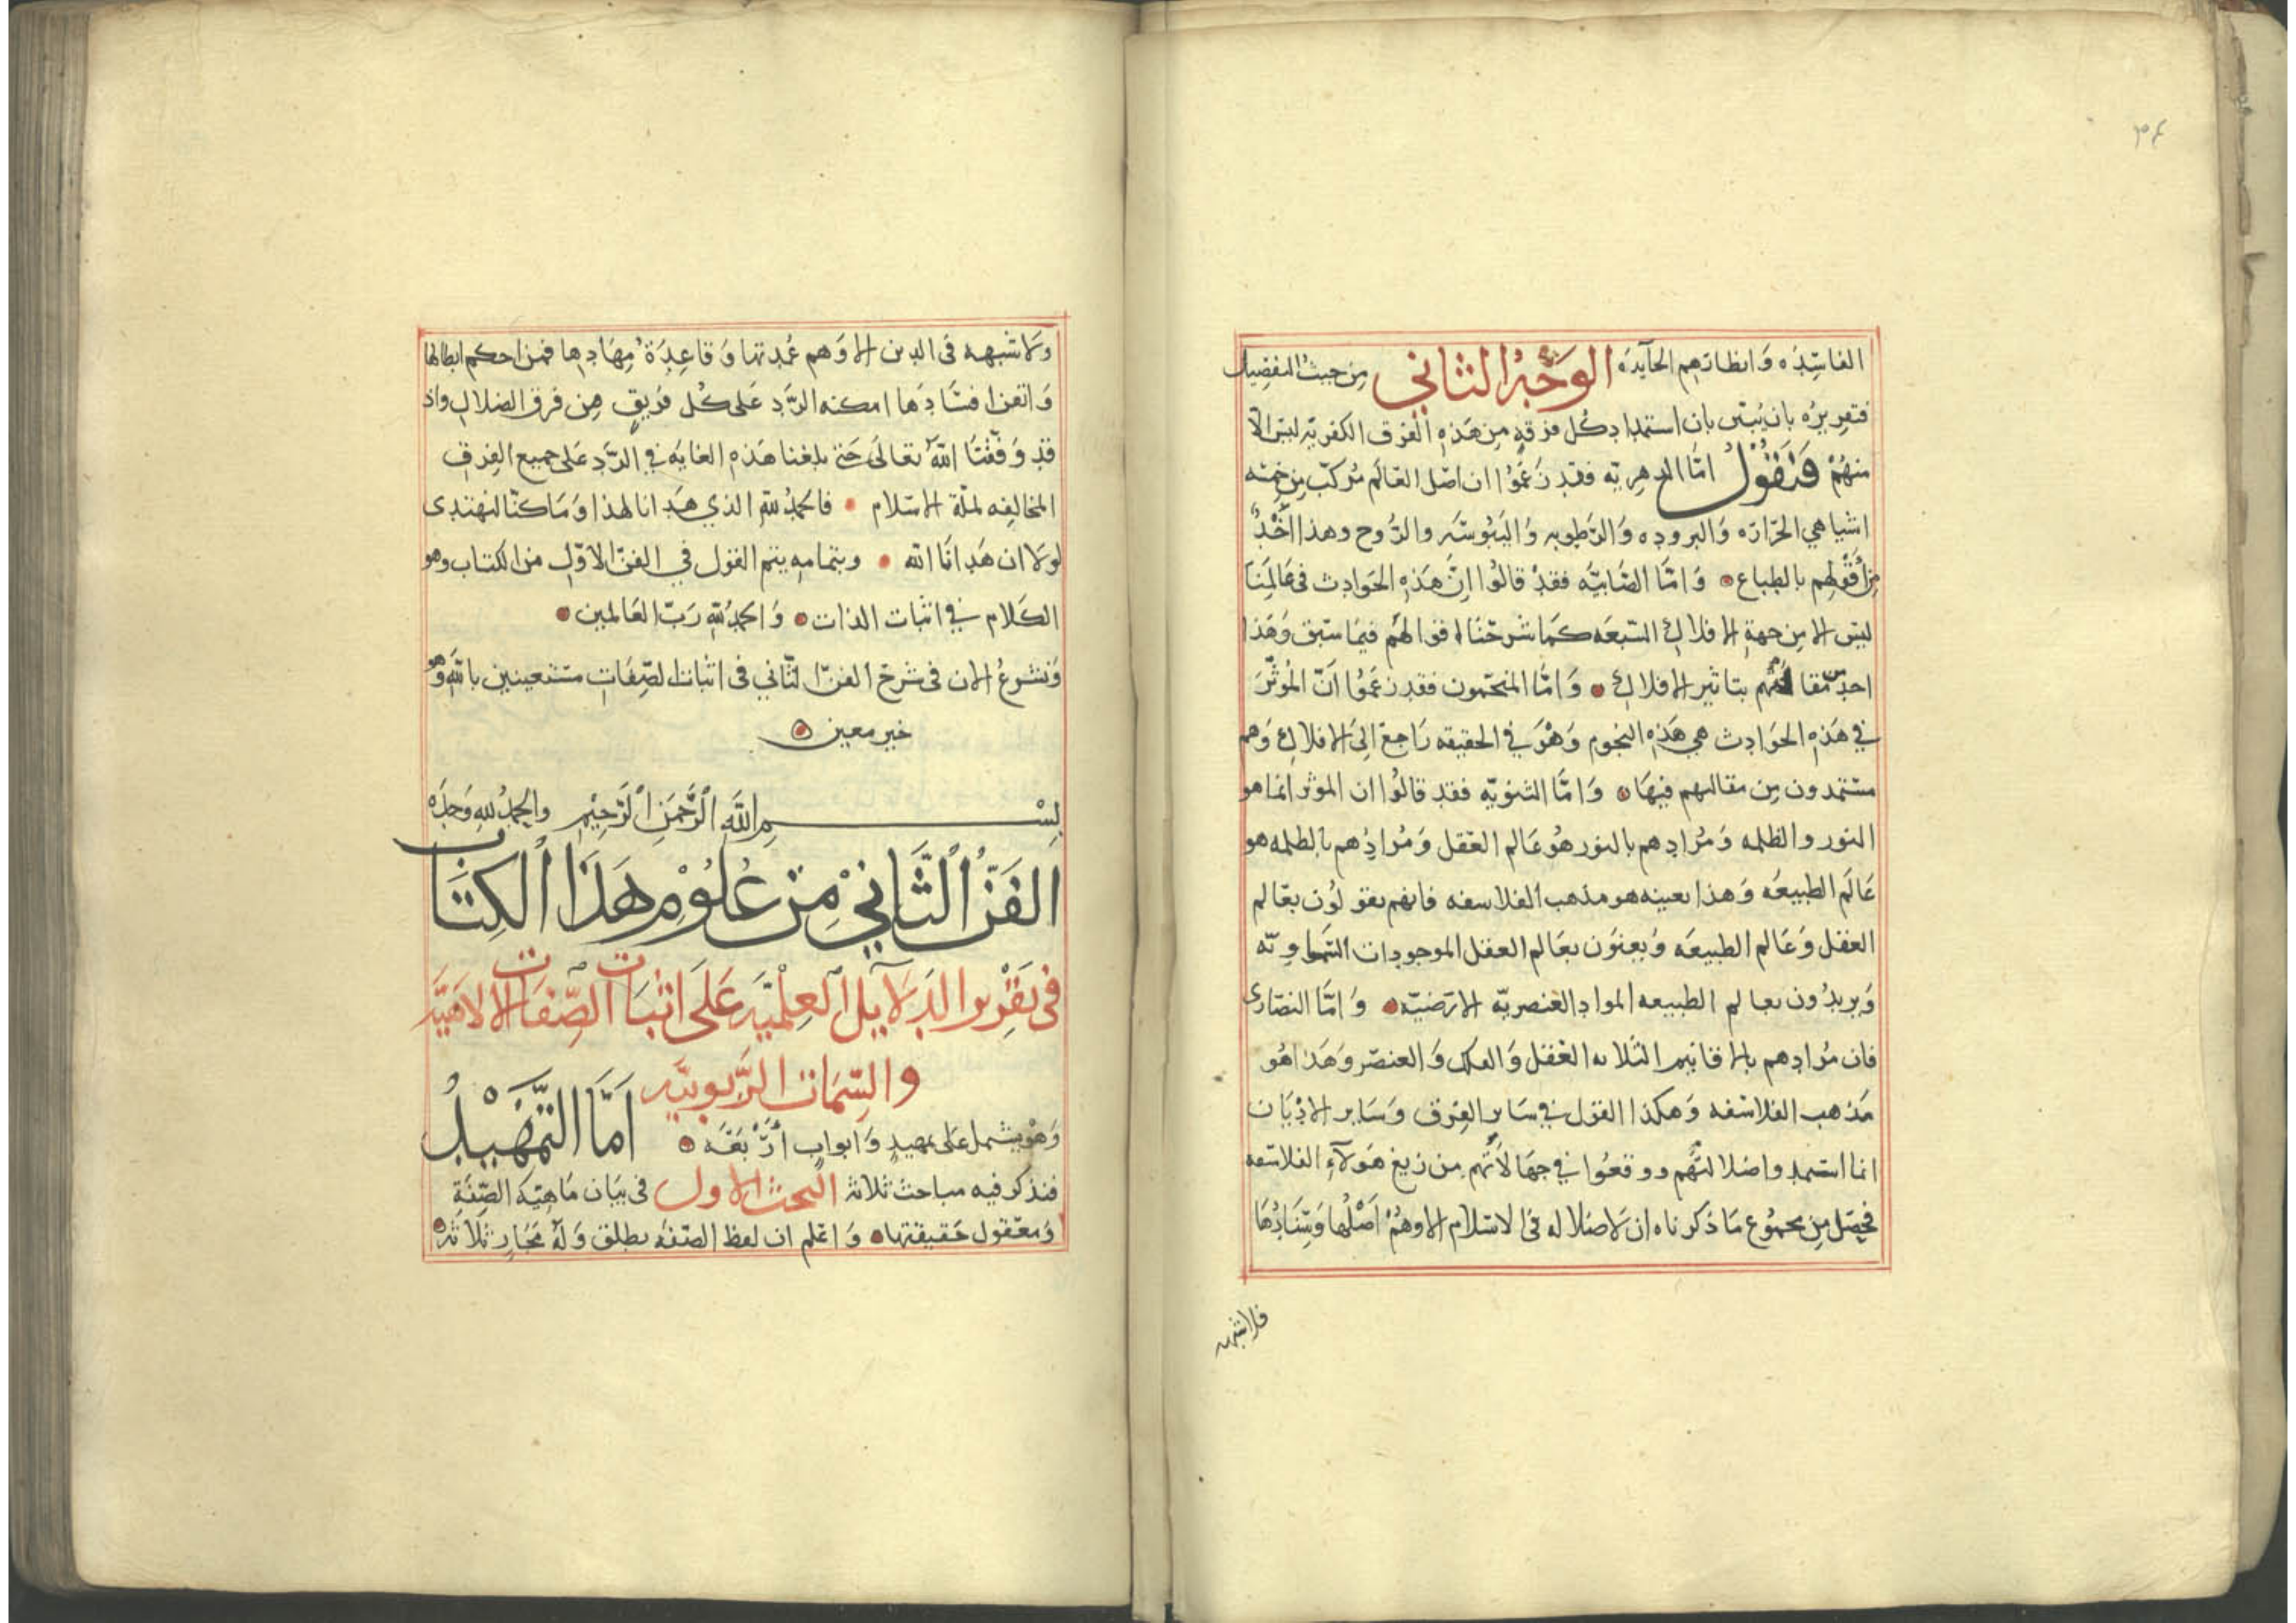 ٣٤
الفاسِدَه وَانظارَهم الحآيدَه الوَجْهُ الثاني مِن حيثُ التفصِيل
فتقرِيرُه بان نُبيّن بان استمدادكُل فرقهٍ مِن هَذهِ الفرق الكفريّه ليسَ الا
منهُمْ فَنَقُولُ امَّا الدهرِيّه فقد زعَمُوا ان اصْل العَالَم مُركبٌ مِن خمسَه
اشيا هي الحَرَارَه وَالبرودَه وَالرَّطوبه وَاليَبُوسَه والرُّوح وهذا اخْذٌ
مِن قَوْلهم بالطباع وَامَّا الصَّابيَّه فقدْ قالُوا انَّ هَذهِ الحَوَادِث في عَالمِنَا
ليسَ الا مِن جهةِ الافلاكِ السَّبعَه كمَا شرحْنَا اقوالهُم فيمَا سَبق وَهَذا
احد مقالتهُم بتاثير الافلاك وَامَّا المنجّمون فقد زعَمُوا انّ المُؤثّرَ
في هَذهِ الحَوَادث هي هَذهِ النجُوم وَهْوَ في الحقيقه رَاجعٌ الىَ الافلاك وَهم
مستمدون مِن مقالتهم فيهَا وَامَّا الثنويّه فقد قالُوا ان الموثر انما هو
النور والظلمه وَمُرادهم بالنور هُو عَالم العَقل وَمُرادُهم بالظلمه هو
عَالَم الطبيعَه وَهذا بعينه هو مذهب الفلاسفه فانهم يقولوُن بعَالم
العقل وَعَالم الطبيعَه وَيعنوَن بعَالم العقل الموجودات السَّماويّه
وَيريدُون بعالم الطبيعه المواد العنصريّه الارَضيّه وَامَّا النصَارَى
فان مُرادهم بالاقانيم الثلاثه العَقل وَالفلك وَالعنصر وَهَذا هُو
مَذهب الفلاسفه وَهكذا القول في سَاير الفِرق وَسَاير الاديَان
انما استمد واضلالتَهُم ووقعُوا في جهَالاَتهُم مِن زيغ هَولآءِ الفلاسفه
فحصَل مِن مجمُوع مَا ذكرناه ان لاضلاله في الاسْلام الا وهُمْ اصْلُها وَسِنَادُهَا
فلاشبهه
وَلاشبهه في الدين الا وَهم عُمدتها وَقاعِدَةُ مِهَادِها فمن احكم ابطالها
وَاتقن افسَادَها امكنه الرَّد عَلى كُل فرَيقٍ مِن فرق الضلال واذ
قد وَفّقنَا اللهُ تعَالَى حَتى بلغنا هَذه الغايه في الرَّد عَلى جميع الفِرق
المخالفِه لملّة الاسْلام فالحمدُ للهِ الذي هَدانا لهذا وَمَا كنّا لنهتدى
لولا ان هَدانَا الله وبتمامهِ يتم القول في الفنّ الاوّل من الكتاب وهو
الكَلام في اثبات الذات وَالحمدُ للهِ رَبّ العَالمين
وَنشرعُ الان في شرَح الفنّ الثّاني في اثبات الصِّفَات مستعينين بالله وَهو
خير معين
بِسْمِ اللهِ الرَّحمَنِ الرَّحِيْمِ والحمدُ للهِ وَحدَه
الفَنُّ الثَّانِيْ مِنْ عُلُوْمِ هَذَا الكِتَابِ
في تقرِير الدَلايِل العِلْميَّه عَلَى اثبَات الصِّفات الالاهيَّه
والسِّمَات الرَّبوبيَّه
وَهْو يشمل على تمهيدٍ وَابوابٍ ارْبَعَه امَّا التَّمْهِيْدُ
فنذكر فيه مباحث ثلاثه البحث الاول في بيَان مَاهيّه الصِّفَةِ
وَمعْقول حَقيقتها وَاعْلم ان لفظ الصّفه يطلق وَلهُ مَجَارٍ ثلاثه